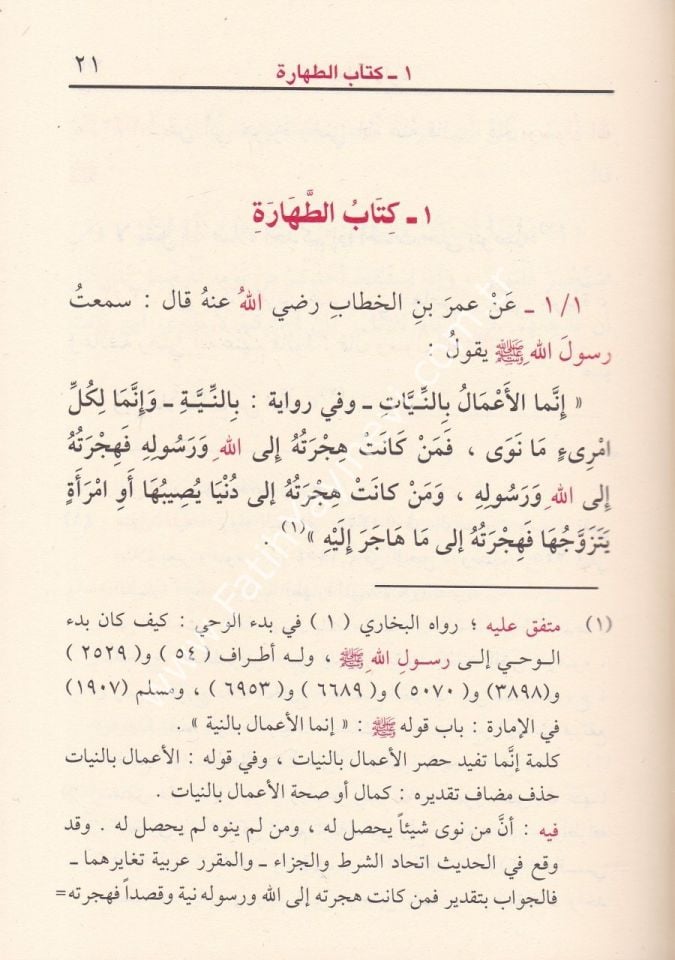 ١ ـ كتاب الطهارة ٢١
١ ـ كِتَابُ الطَّهَارَةِ
١/١ ـ عَنْ عمرَ بنِ الخطابِ رضي اللهُ عنهُ قال : سمعتُ
رسولَ اللهِ ﷺ يقولُ :
« إِنَّما الأَعْمَالُ بِالنِّيَّاتِ ـ وفي رواية : بِالنِّيَّةِ ـ وَإِنَّمَا لِكُلِّ
امْرِىءٍ مَا نَوَى ، فَمَنْ كَانَتْ هِجْرَتُهُ إلى اللهِ وَرَسُولِهِ فَهِجْرَتُهُ
إلى اللهِ وَرَسُولِهِ ، وَمَنْ كانَتْ هِجْرَتُهُ إلى دُنْيَا يُصِيبُهَا أَوِ امْرَأَةٍ
يَتَزَوَّجُهَا فَهِجْرَتُهُ إلى مَا هَاجَرَ إِلَيْهِ »(١) .
(١) متفق عليه ؛ رواه البخاري ( ١ ) في بدء الوحي : كيف كان بدء
الوحي إلى رسولِ اللهِ ﷺ ، وله أطراف ( ٥٤ ) و( ٢٥٢٩ )
و(٣٨٩٨) و( ٥٠٧٠ ) و( ٦٦٨٩ ) و( ٦٩٥٣ ) ، ومسلم (١٩٠٧)
في الإمارة : باب قوله ﷺ : « إنما الأعمال بالنية » .
كلمة إنَّما تفيد حصر الأعمال بالنيات ، وفي قوله : الأعمال بالنيات
حذف مضاف تقديره : كمال أو صحة الأعمال بالنيات .
فيه : أنَّ من نوى شيئاً يحصل له ، ومن لم ينوه لم يحصل له . وقد
وقع في الحديث اتحاد الشرط والجزاء ـ والمقرر عربية تغايرهما ـ
فالجواب بتقدير فمن كانت هجرته إلى الله ورسوله نية وقصداً فهجرته=